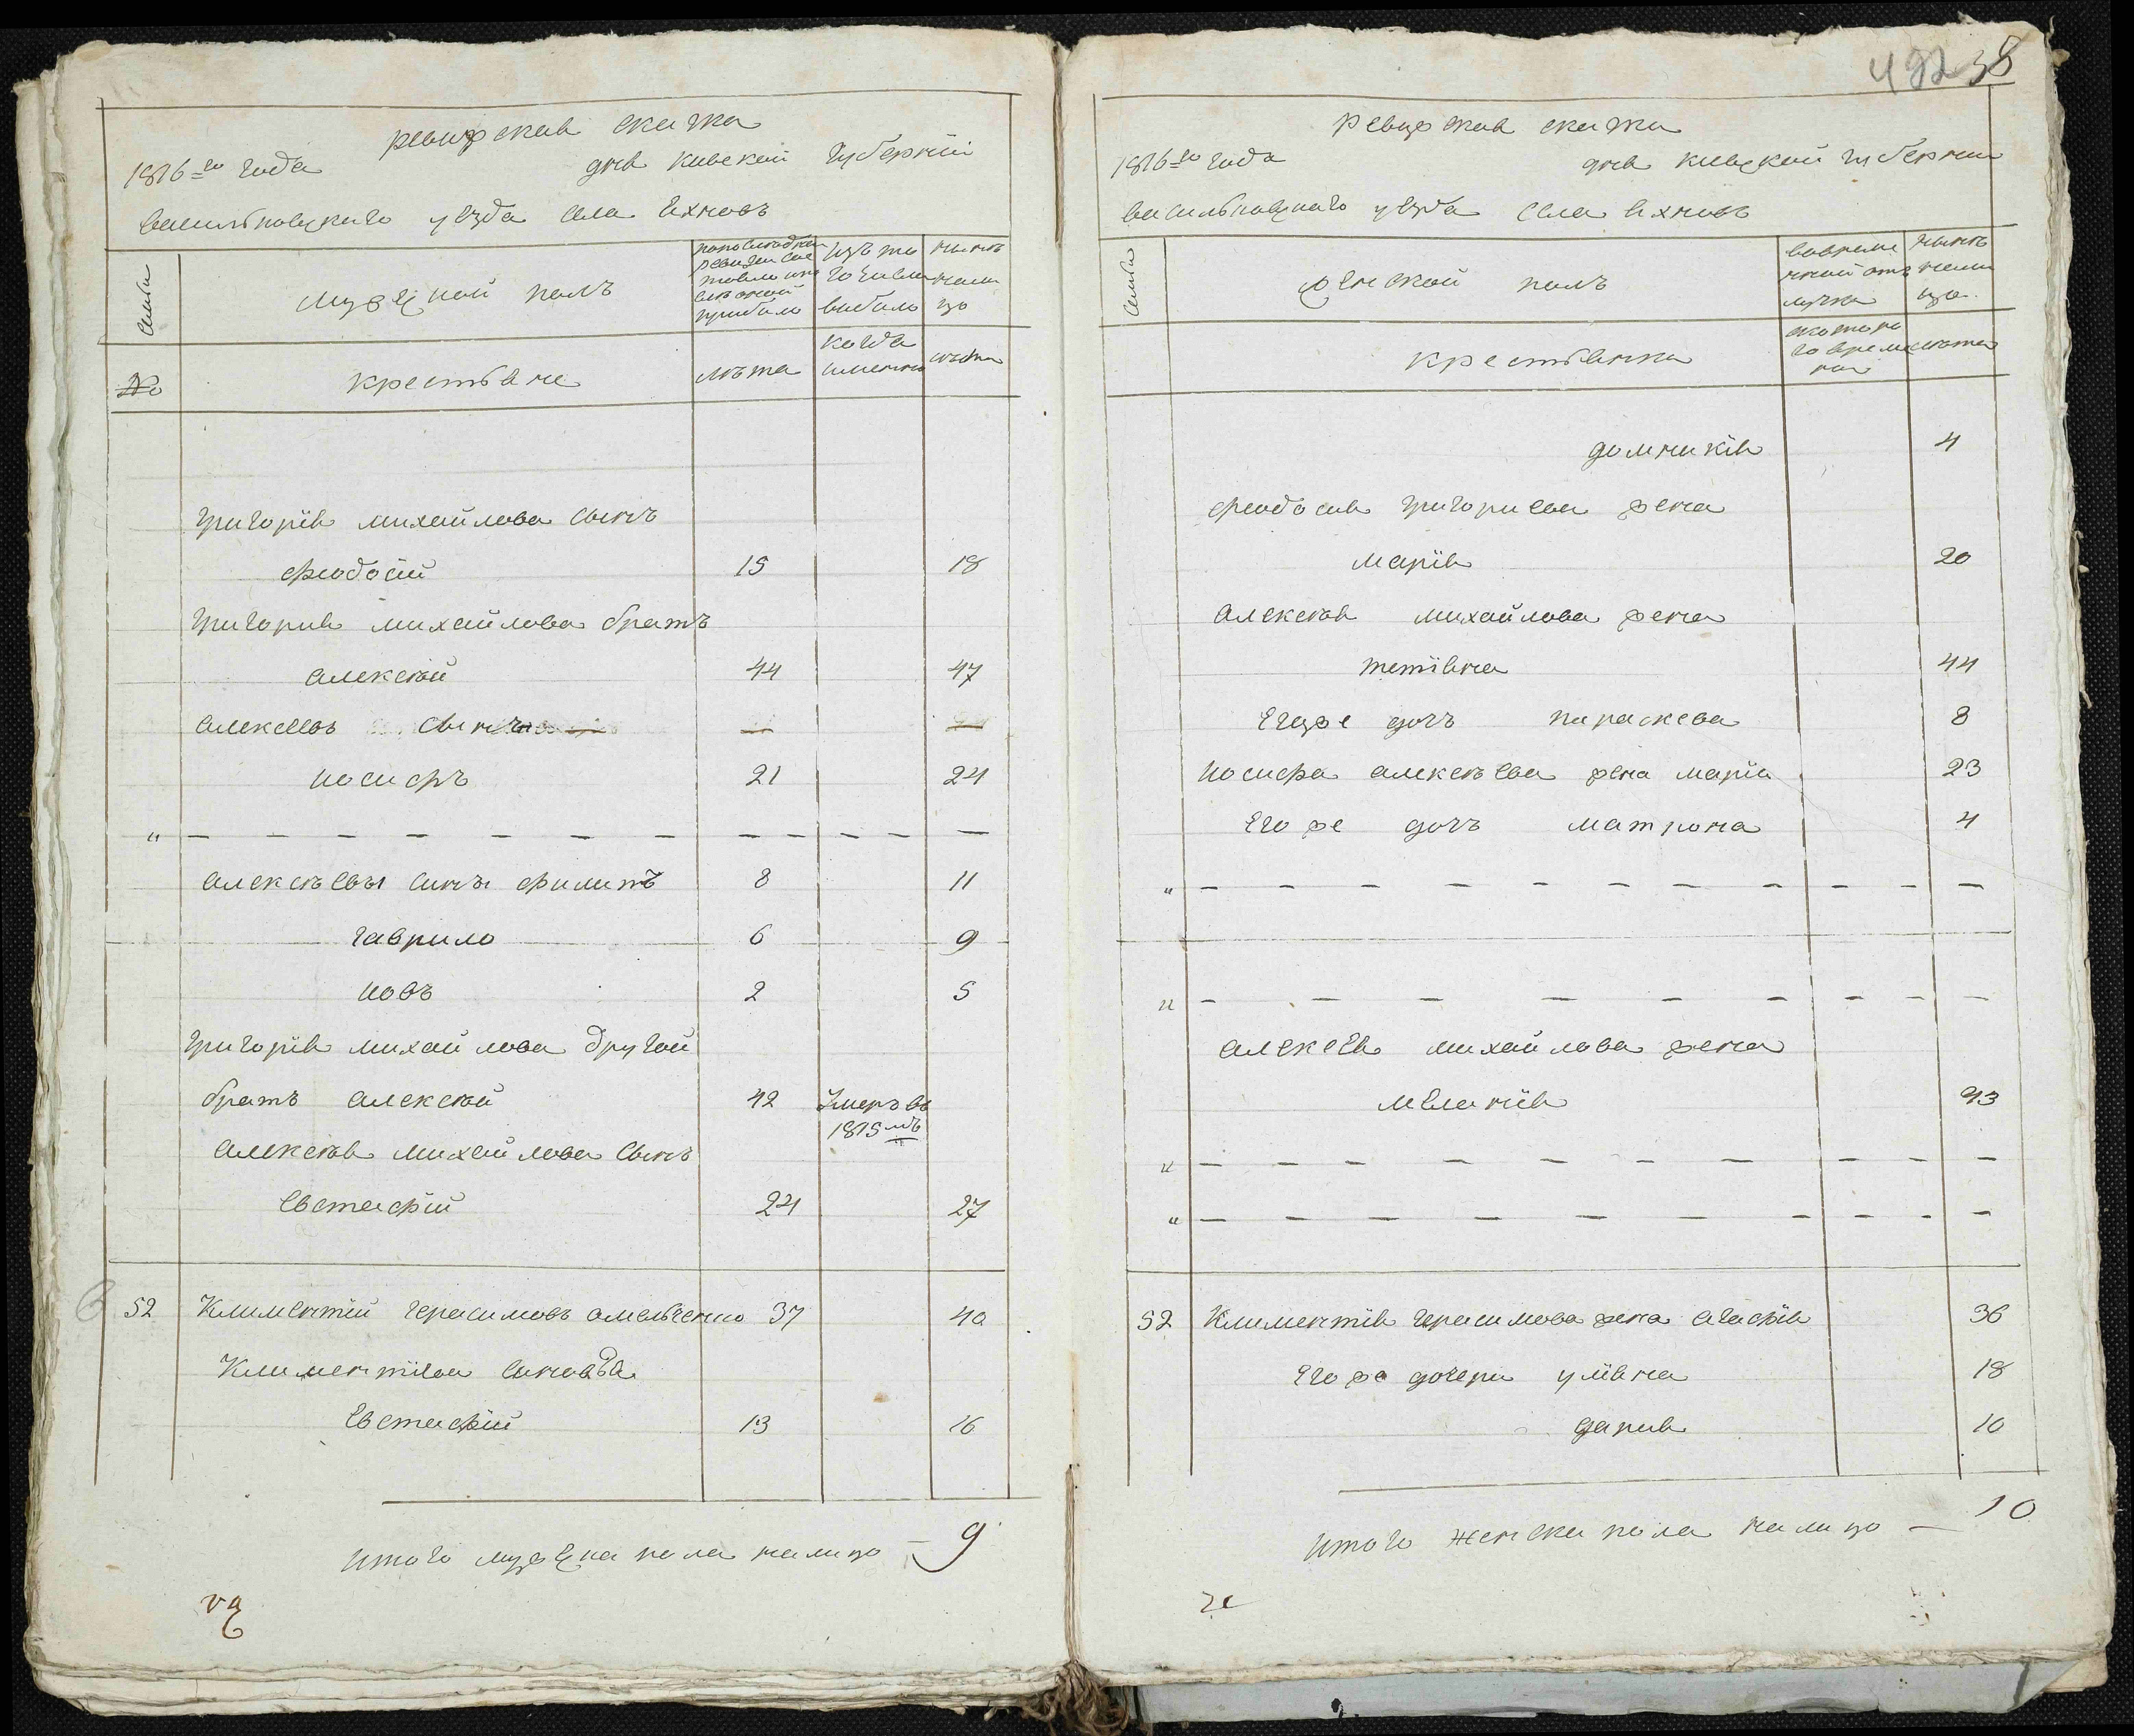 ревизская скаска
1816=го года дня кивской губерніи
васильковскаго уезда села ехновъ
Семьи
мужеской полъ
попоследней
ревизіи сос
тояло и по
слѣ оной
прибыло
изъ то
го числа
выбыло
нынѣ
нали
цо
№
крестьяне
лѣта
когда
именно
лѣта
Григорія михайлова сынъ
феодосій
15
18
Григория михайлова братъ
алексѣй
44
47
алексеевъ сынъ
иосифъ
21
24
" — — — — — — — — — — — —
алексѣевы сины филипъ
8
11
гаврило
6
9
иовъ
2
5
Григорія михайлова другой
братъ алексѣй
42
Умеръ въ
1815 мъ
алексѣя михайлова сынъ
евстафій
24
27
52 Климентій герасимовъ омельченко 37
40
Климентіева синовья
Евстафій
13
16
итого мужеска пола налицо — 9
492 38
ревизская скаска
1816=го года дня кивской губернии
васильковскаго уезда села ехновъ
Семьи
женской полъ
вовреме
нной отъ
лучке
нынѣ
нали
цо
крестьянки
скоторо
го време
ни
лѣта
домникія
4
феодосія григориева жена
марія
20
алексѣя михайлова жена
тетіяна
44
Егоже дочъ параскева
8
иосифа алексѣева жена марія
23
Его же дочъ матрона
4
" — — — — — — — — — — —
" — — — — — — — — —
алексея михайлова жена
меланія
43
" — — — — — — — — — —
" — — — — — — — — — —
52 Климентія герасимова жена агафія
36
Его же дочери уліяна
18
дария
10
итого женска пола налицо — 10